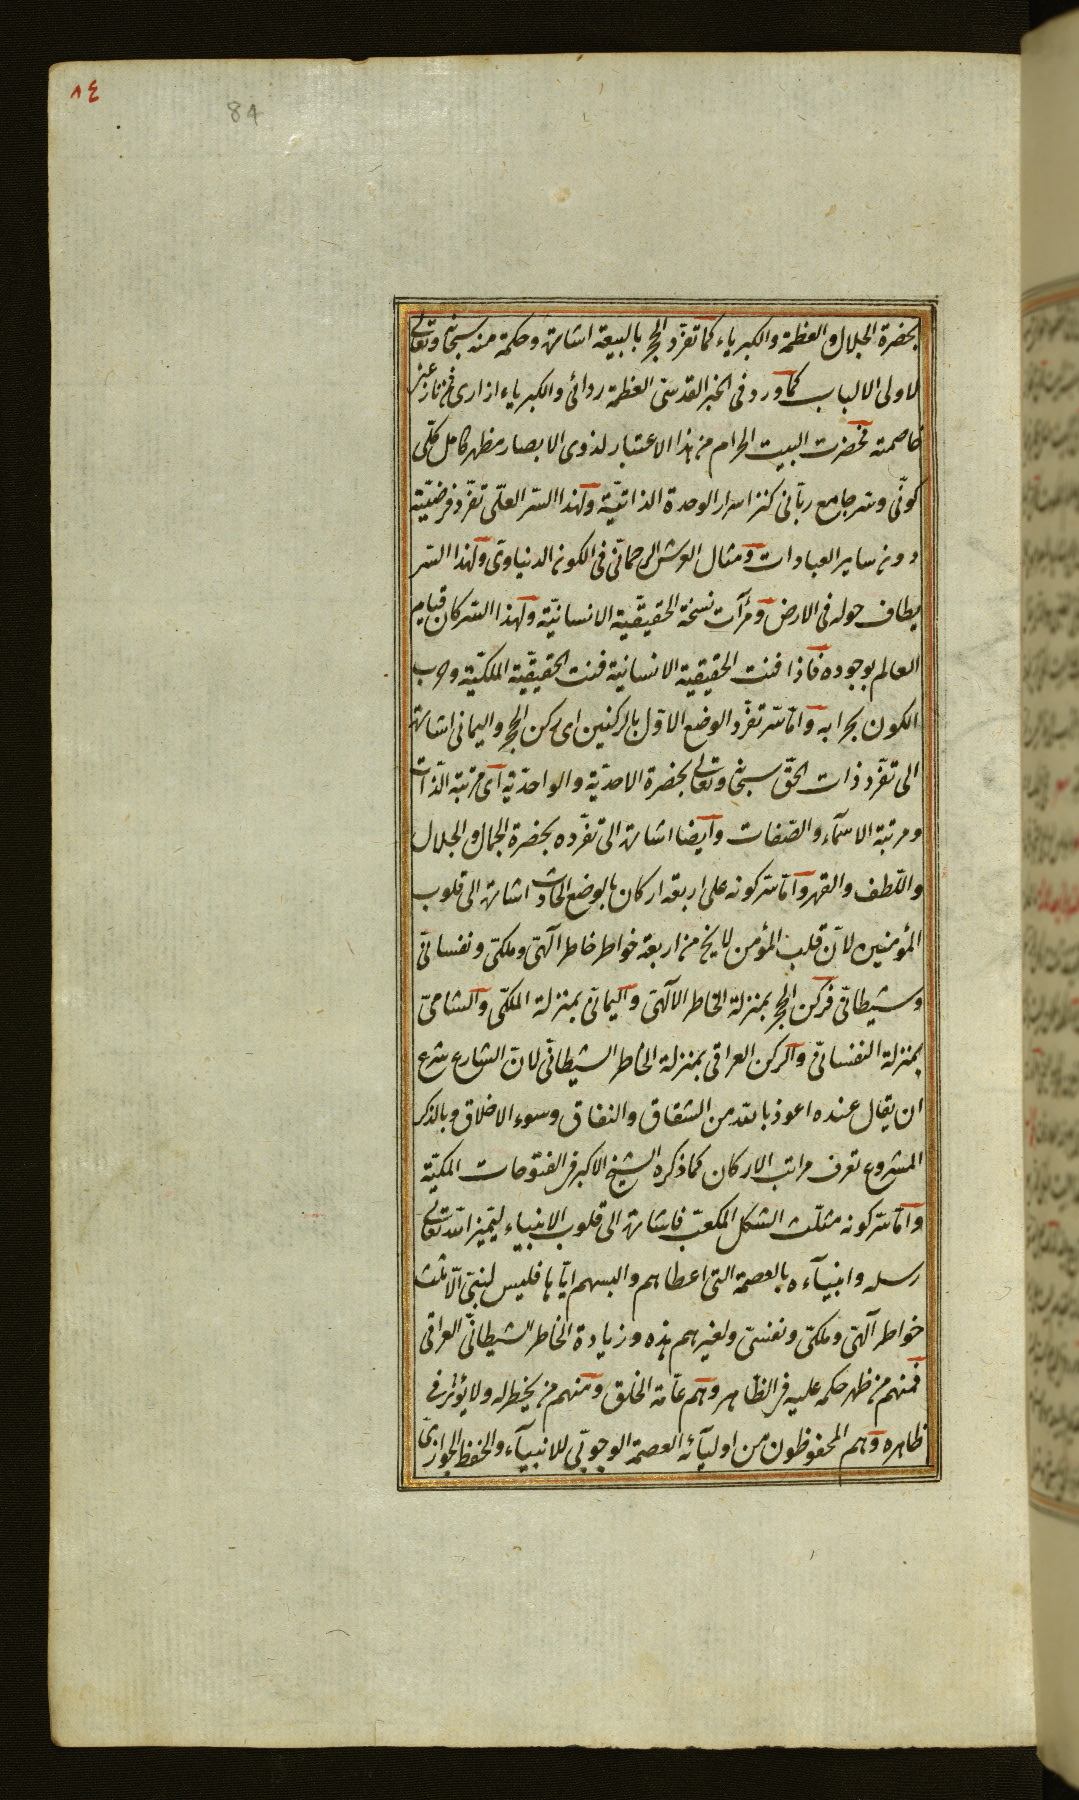 ٨٤
84
بحضرة الجلال والعظمة والكبرياء كما تفرّد الحجر بالبيعة اشارة وحكمة منه سبحانه وتعالى
لاولى الالباب كما ورد فى الخبر القدسىّ العظمة ردائى والكبرياء ازارى فمن نازعنى
خاصمته فحضرت البيت الحرام من هذا الاعتبار لذوى الابصار مظهر كامل كلّى
كونّى وسر جامع ربّانى كنز اسرار الوحدة الذاتيّة ولهذا السّر العلّى تفرّد فرضيّته
دون ساير العبادات ومثال العرش الرحمانّى فى الكون الدنياوى ولهذا السّر
يطاف حوله فى الارض ومرآت نسخة الحقيقّية الانسانيّة ولهذا السّر كان قيام
العالم بوجوده فاذا فنت الحقيقية الانسانية فنت الحقيقّية الملكيّة وخرب
الكون بخرابه وامّا سّر تفرّد الوضع الاوّل بالركنين اى ركن الحجر واليمانى اشارة
الى تفرّد ذات الحقّ سبحانه وتعالى بحضرة الاحديّة والواحديّة اى مرتبة الذّات
ومرتبة الاسمآء والصّفات وايضا اشارة الى تفرّده بحضرة الجمال والجلال
واللّطف والقهر وامّا سّر كونه على اربعة اركان بالوضع الحادث اشارة الى قلوب
المؤمنين لانّ قلب المؤمن لا يخ من اربعة خواطر خاطر آلهىّ وملكىّ ونفسانىّ
وشيطانىّ فركن الحجر بمنزلة الخاطر الآلهىّ واليمانّى بمنزلة الملكّى والشامىّ
بمنزلة النفسانّى والركن العراقى بمنزلة الخاطر الشيطانّى لانّ الشارع شرع
ان يقال عنده اعوذ بالله من الشقاق والنفاق وسوء الاخلاق وبالذكر
المشروع تعرف مراتب الاركان كما ذكره الشيخ الاكبر فى الفتوحات المكيّة
وامّا سّر كونه مثلّث الشكل المكعّب فاشارة الى قلوب الانبياء ليتميز الله تعالى
رسله وانبيآءه بالعصمة التى اعطاهم والبسهم ايّاها فليس لنبىّ الّا ثلث
خواطر آلهىّ وملكىّ ونفسىّ ولغيرهم هذه وزيادة الخاطر الشيطانّى العراقى
فمنهم من ظهر حكمه عليه فى الظاهر وهم عآمّة الخلق ومنهم من يخطر له ولا يؤثر فى
ظاهره وهم المحفوظون من اوليآئه العصمة الوجوبّى للانبيآء والحفظ الجوازىّ